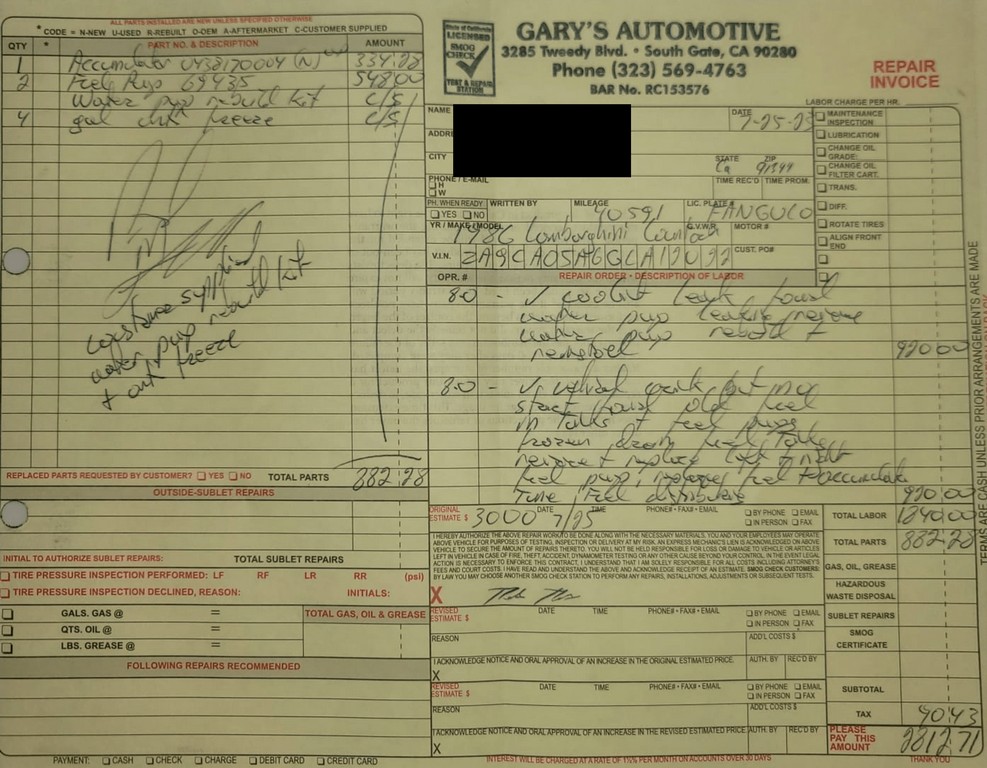 ALL PARTS INSTALLED ARE NEW UNLESS SPECIFIED OTHERWISE
* CODE = N-NEW U-USED R-REBUILT O-OEM A-AFTERMARKET C-CUSTOMER SUPPLIED
QTY * PART NO. & DESCRIPTION AMOUNT
1 Accumulator 0438170004 (N) 334.28
2 69435 548.00
Water pup rebuild kit c/s
4 gal anti freeze c/s
supplied
water pup rebuild kit
+ anti freeze
REPLACED PARTS REQUESTED BY CUSTOMER? YES NO TOTAL PARTS 882.28
OUTSIDE-SUBLET REPAIRS
INITIAL TO AUTHORIZE SUBLET REPAIRS: TOTAL SUBLET REPAIRS
TIRE PRESSURE INSPECTION PERFORMED: LF RF LR RR (psi)
TIRE PRESSURE INSPECTION DECLINED, REASON: INITIALS:
GALS. GAS @ = TOTAL GAS, OIL & GREASE
QTS. OIL @ =
LBS. GREASE @ =
FOLLOWING REPAIRS RECOMMENDED
PAYMENT: CASH CHECK CHARGE DEBIT CARD CREDIT CARD
State of California
LICENSED
SMOG CHECK
TEST & REPAIR STATION
GARY'S AUTOMOTIVE
3285 Tweedy Blvd. • South Gate, CA 90280
Phone (323) 569-4763
BAR No. RC153576
REPAIR INVOICE
LABOR CHARGE PER HR.
NAME DATE 7-25-23
ADDRE
CITY STATE Ca ZIP 91344
PHONE / E-MAIL
H
W
TIME REC'D TIME PROM.
PH. WHEN READY WRITTEN BY MILEAGE LIC. PLATE #
YES NO 40591 FANGULO
YR / MAKE / MODEL 1986 Lamborghini Countach G.V.W.R. MOTOR #
V.I.N. CUST. PO#
MAINTENANCE INSPECTION
LUBRICATION
CHANGE OIL GRADE:
CHANGE OIL FILTER CART.
TRANS.
DIFF.
ROTATE TIRES
ALIGN FRONT END
OPR. # REPAIR ORDER - DESCRIPTION OF LABOR
8.0 - ✓ coolant leak found
water pup leaking remove
water pup rebuild +
reinstall 920.00
8.0 - ✓
start found old fuel
in tanks + fuel pups
frozen drain fuel tanks
remove + replace left + right
fuel pup, replace fuel accumulator
Tune, Fuel 920.00
ORIGINAL ESTIMATE $ 3000 DATE 7/25 TIME PHONE# • FAX# • EMAIL BY PHONE EMAIL IN PERSON FAX
I HEREBY AUTHORIZE THE ABOVE REPAIR WORK TO BE DONE ALONG WITH THE NECESSARY MATERIALS. YOU AND YOUR EMPLOYEES MAY OPERATE
ABOVE VEHICLE FOR PURPOSES OF TESTING, INSPECTION OR DELIVERY AT MY RISK. AN EXPRESS MECHANIC'S LIEN IS ACKNOWLEDGED ON ABOVE
VEHICLE TO SECURE THE AMOUNT OF REPAIRS THERETO. YOU WILL NOT BE HELD RESPONSIBLE FOR LOSS OR DAMAGE TO VEHICLE OR ARTICLES
LEFT IN VEHICLE IN CASE OF FIRE, THEFT, ACCIDENT
BY LAW YOU MAY CHOOSE ANOTHER SMOG CHECK STATION TO PERFORM ANY REPAIRS, INSTALLATIONS, ADJUSTMENTS OR SUBSEQUENT TESTS.
X
REVISED ESTIMATE $ DATE TIME PHONE# • FAX# • EMAIL BY PHONE EMAIL IN PERSON FAX
REASON ADD'L COSTS $
I ACKNOWLEDGE NOTICE AND ORAL APPROVAL OF AN INCREASE IN THE ORIGINAL ESTIMATED PRICE. AUTH. BY REC'D BY
X
REVISED ESTIMATE $ DATE TIME PHONE# • FAX# • EMAIL BY PHONE EMAIL IN PERSON FAX
REASON ADD'L COSTS $
I ACKNOWLEDGE NOTICE AND ORAL APPROVAL OF AN INCREASE IN THE REVISED ESTIMATED PRICE. AUTH. BY REC'D BY
X
INTEREST WILL BE CHARGED AT A RATE OF 1½% PER MONTH ON ACCOUNTS OVER 30 DAYS
TOTAL LABOR 1840.00
TOTAL PARTS 882.28
GAS, OIL, GREASE
HAZARDOUS WASTE DISPOSAL
SUBLET REPAIRS
SMOG CERTIFICATE
SUBTOTAL
TAX 90.43
PLEASE PAY THIS AMOUNT 2812.71
THANK YOU
TERMS ARE CASH UNLESS PRIOR ARRANGEMENTS ARE MADE